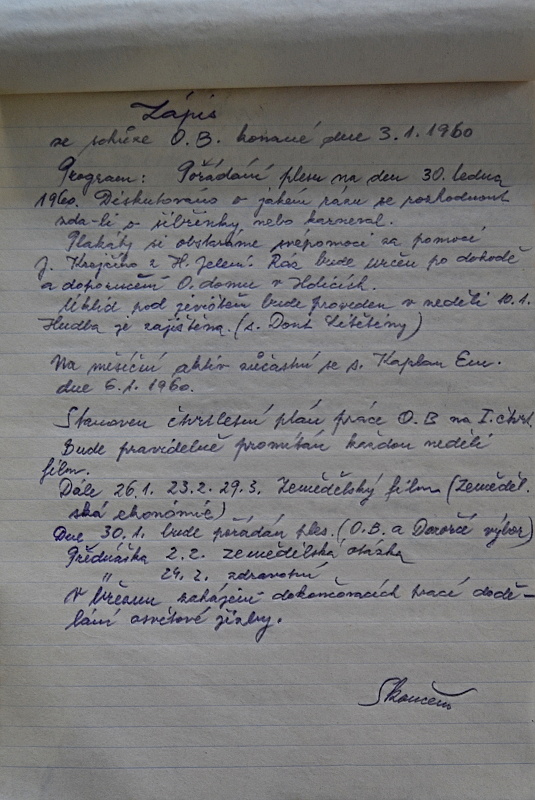 Zápis
ze schůze O.B. konané dne 3.1.1960
Program: Pořádání plesu na den 30. ledna
1960. Diskutováno o jakém rázu se rozhodnout
zda-li o šibřinky nebo karneval.
Plakáty si obstaráme svépomocí za pomoci
J. Krejčího z H. Jelení. Ráz bude určen po dohodě
a doporučení O. domu v Holicích.
Úklid pod jevištěm bude proveden v neděli 10.1.
Hudba je zajištěna. (s. Dont Litětiny)
Na měsíční aktiv zúčastní se s. Kaplan Em.
dne 6.1.1960.
Stanoven čtvrtletní plán práce O.B na I. čtvrt.
Bude pravidelně promítán každou neděli
film.
Dále 26.1. 23.2. 29.3. Zemědělský film (Zeměděl.
ská ekonomie)
Dne 30.1. bude pořádán ples. (O.B. a Dozorčí výbor)
Přednáška 2.2. zemědělská otázka
" 24.2. zdravotní
V březnu zahájení dokončovacích prací dodě-
lání osvětové jizby.
Skončeno